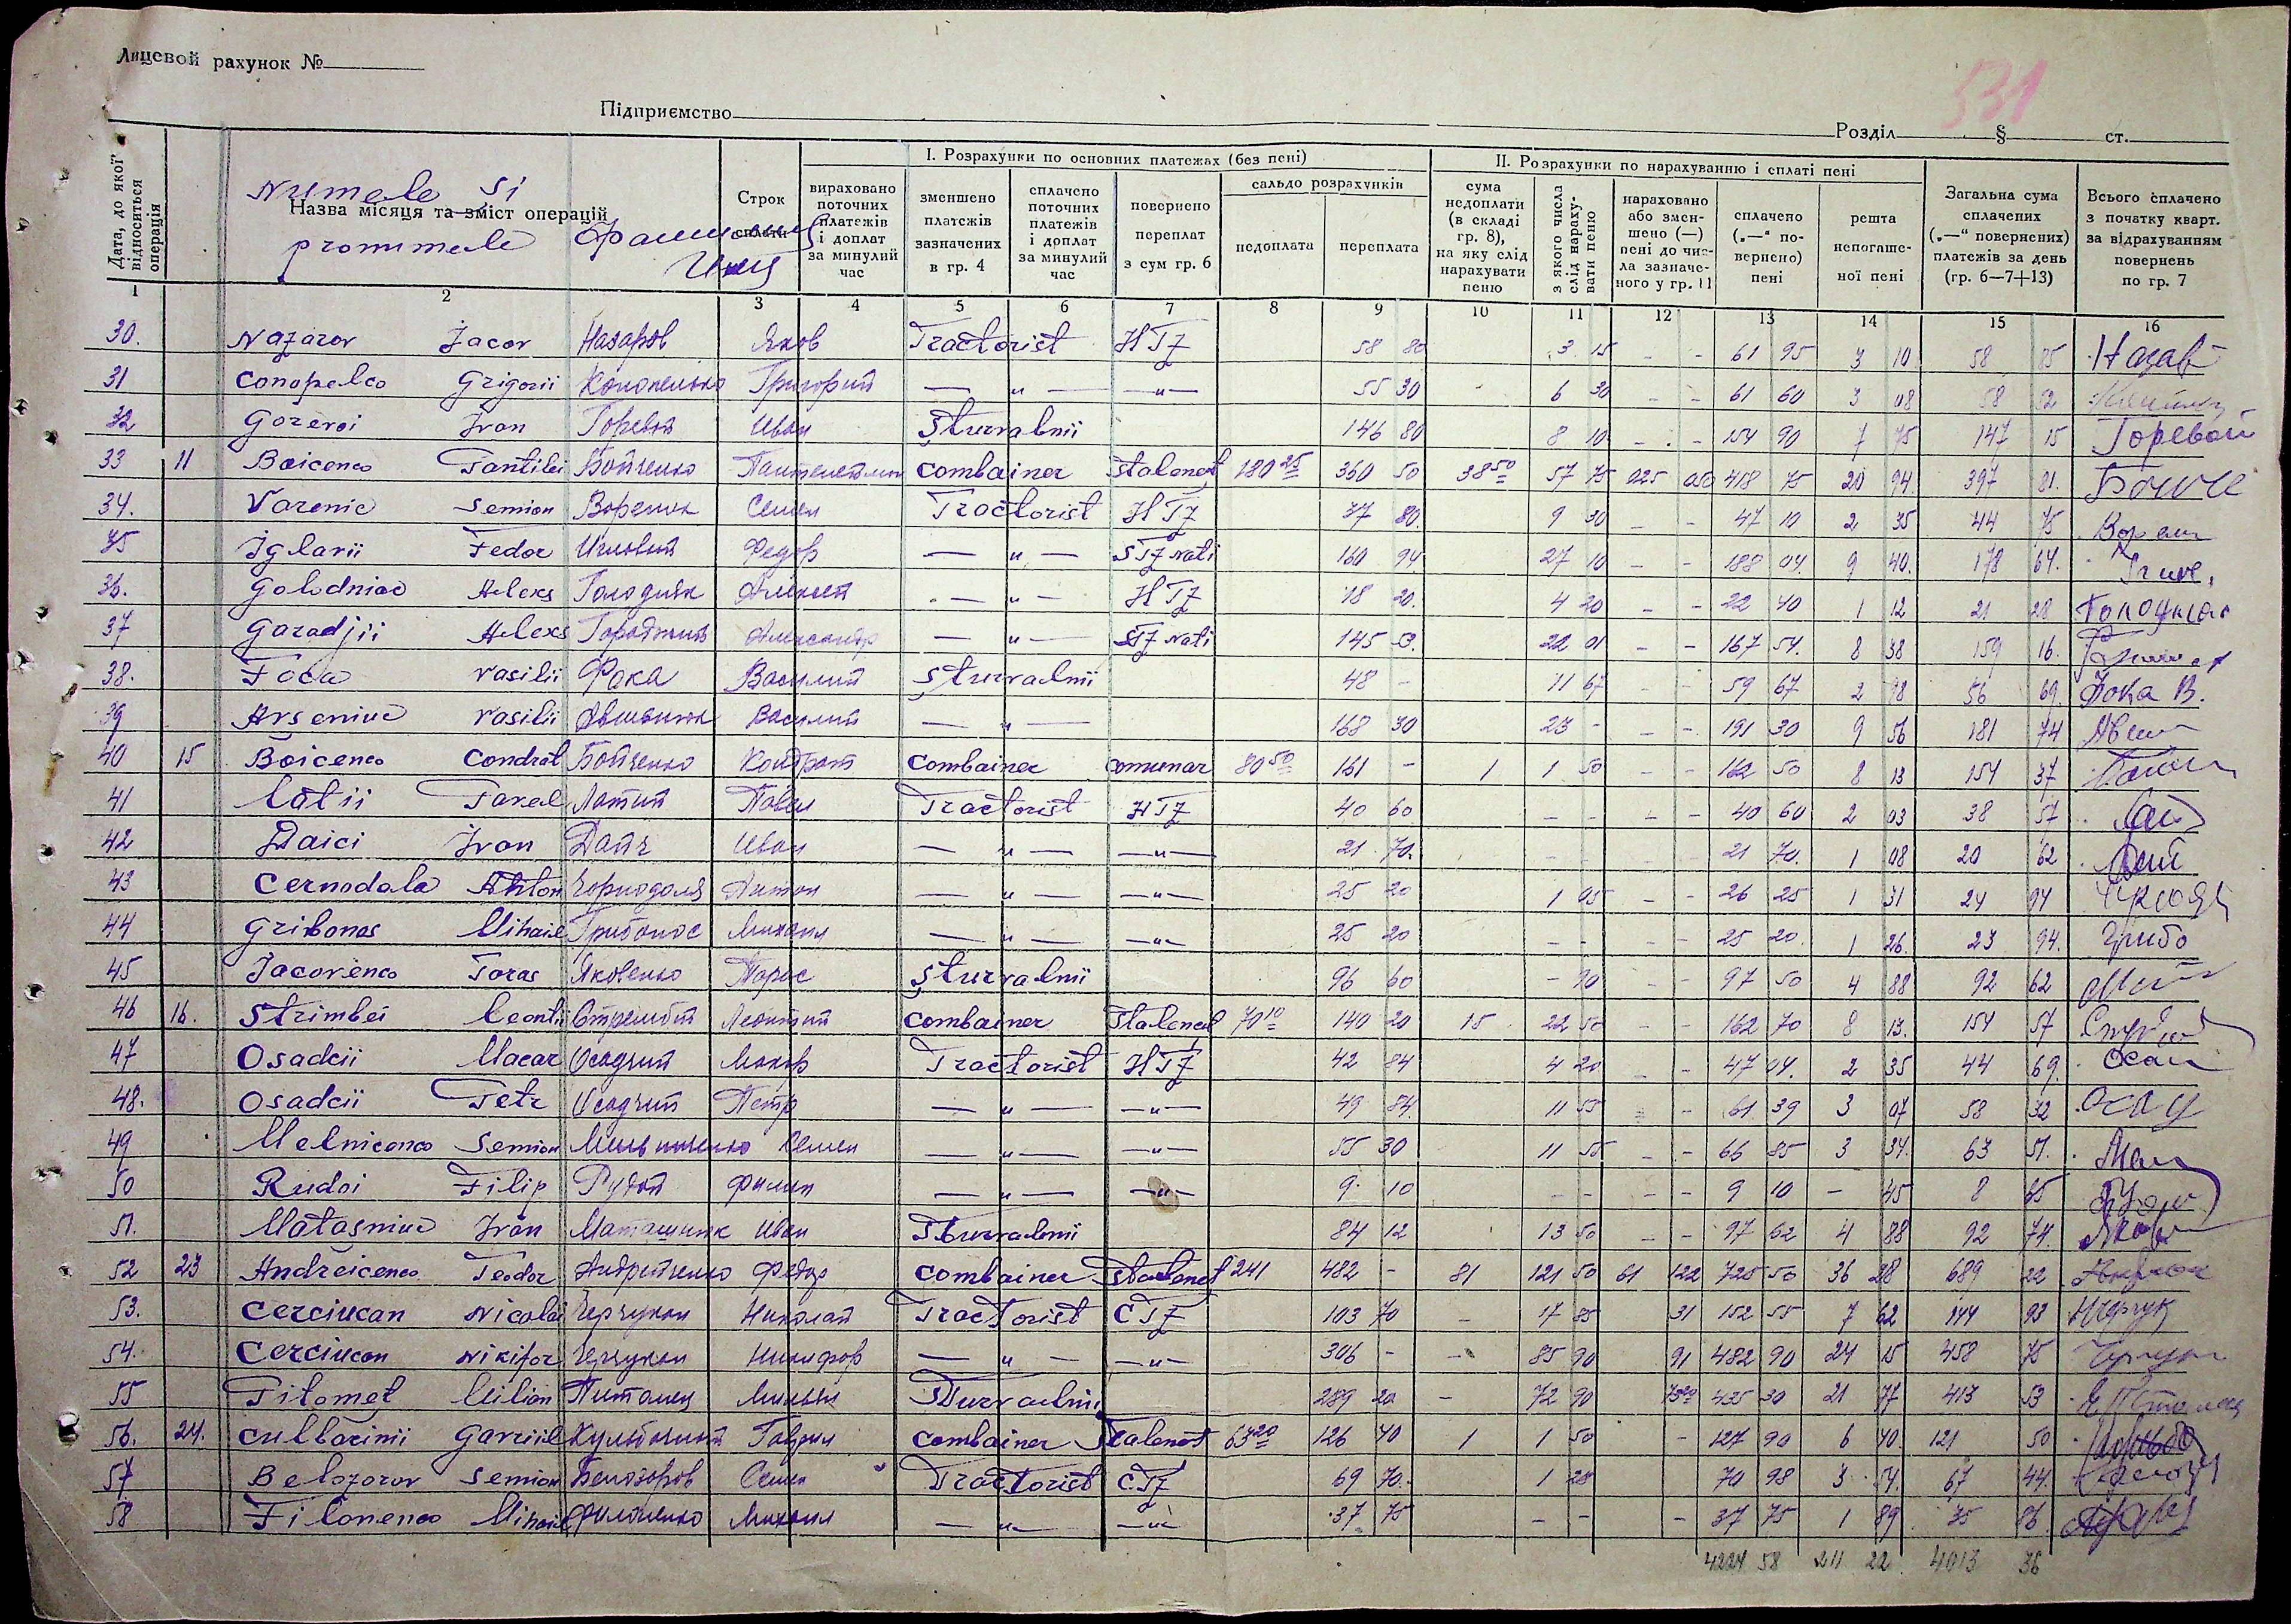 Лицевой рахунок №
531
Підприємство Розділ § ст.
Дата, до якої відноситься операція
Numele si pronumele
Назва місяця та зміст операцій
Фамилия Имя
Строк сплати
I. Розрахунки по основних платежах (без пені)
вираховано поточних платежів і доплат за минулий час
зменшено платежів зазначених в гр. 4
сплачено поточних платежів і доплат за минулий час
повернено переплат з сум гр. 6
сальдо розрахунків
недоплата переплата
II. Розрахунки по нарахуванню і сплаті пені
сума недоплати (в складі гр. 8), на яку слід нарахувати пеню
з якого числа слід нараху- вати пеню
нараховано або змен- шено (—) пені до чис- ла зазначе- ного у гр. 11
сплачено („—“ по- вернено) пені
решта непогаше- ної пені
Загальна сума сплачених („—“ повернених) платежів за день (гр. 6—7+13)
Всього сплачено з початку кварт. за відрахуванням повернень по гр. 7
1 2 3 4 5 6 7 8 9 10 11 12 13 14 15 16
30. Nazarov Jacov Назаров Яков Tractorist HTZ 58 80 3 15 - - 61 95 3 10 58 85
31 Conopelco Grigorii Конопелько Григорий — " — — " — 55 30 6 30 - - 61 60 3 08 58 52
32 Gorevoi Ivan Горевой Иван Şturvalnii 146 80 8 10 - - 154 90 7 75 147 15 Горевой
33 11 Boicenco Pantilei Бойченко Пантелеймон Combainer Stalineţ 180 25 360 50 38 50 57 75 025 050 418 75 20 94 397 81.
34. Varenic Semion Вореник Семен Tractorist HTZ 37 80. 9 30 - - 47 10 2 35 44 75
35 Iglavii Fedor Игловий Федор — " — STZ Nati 160 94 27 10 - - 188 04 9 40. 178 64.
36. Golodniac Alexs Голодняк Алексей — " — HTZ 18 20. 4 20 - - 22 40 1 12 21 28
37 Garadjii Alexs Гораджий Александр — " — STZ Nati 145 53. 22 01 - - 167 54. 8 38 159 16.
38. Foca Vasilii Фока Василий Şturvalnii 48 - 11 67 - - 59 67 2 98 56 69. Фока В.
39 Avseniuc Vasilii Авсенюк Василий — " — 168 30 23 - - - 191 30 9 56 181 74
40 15 Boicenco Condrat Бойченко Кондрат Combainer comunar 80 50 161 - 1 1 50 - - 162 50 8 13 154 37
41 Latii Pavel Латий Павел Tractorist HTZ 40 60 - - - - 40 60 2 03 38 57
42 Daici Ivan Дайч Иван — " — — " — 21 70. - - 21 70. 1 08 20 62
43 Cernodala Anton Чорнодоля Антон — " — — " — 25 20 1 05 - - 26 25 1 31 24 94
44 Gribonos Mihail Грибонос Михаил — " — — " — 25 20 - - - - 25 20. 1 26. 23 94. Грибо
45 Jacovenco Taras Яковенко Тарас Şturvalnii 96 60 - 90 97 50 4 88 92 62
46 16. Strimbei Leontii Стрембей Леонтий Combainer Stalineţ 70 10 140 20 15 22 50 - - 162 70 8 13. 154 57
47 Osadcii Macar Осадчий Макар Tractorist HTZ 42 84 4 20 - - 47 04. 2 35 44 69.
48. Osadcii Petr Осадчий Петр — " — — " — 49 84. 11 55 - - 61 39 3 07 58 32
49 Melniconco Semion Мельниченко Семен — " — — " — 55 30 11 55 - - 66 85 3 34. 63 51.
50 Rudoi Filip Рудой Филип — " — — " — 9 10 - - - - 9 10 - 45 8 65
51. Matasniuc Ivan Маташнюк Иван Sturvalnii 84 12 13 50 - - 97 62 4 88 92 74.
52 23 Andreicenco Teodor Андрейченко Федор Combainer Stalineţ 241 482 - 81 121 50 61 122 725 50 36 28 689 22
53. Cerciucan Nicolai Черчукан Николай Tractorist CTZ 103 70 - 17 85 31 152 55 7 62 144 93
54. Cerciucan Nikifor Черчукан Никифор — " — — " — 306 - - 85 90 91 482 90 24 15 458 75
55 Pitomeţ Milian Питомец Мильян Sturvalnii 289 20 - 72 90 435 30 21 77 413 53
56. 24. Culbacinii Gavriil Кульбачний Гаврил Combainer Stalineţ 63 20 126 40 1 1 50 - 127 90 6 40. 121 50
57 Belozorov Semion Белозоров Семен Tractorist CTZ 69 70. 1 28 70 98 3 54. 67 44.
58 Filonenco Mihail Филоненко Михаил — " — — " — 37 75 - - - 37 75 1 89 35 86
4224 58 211 22 4013 36